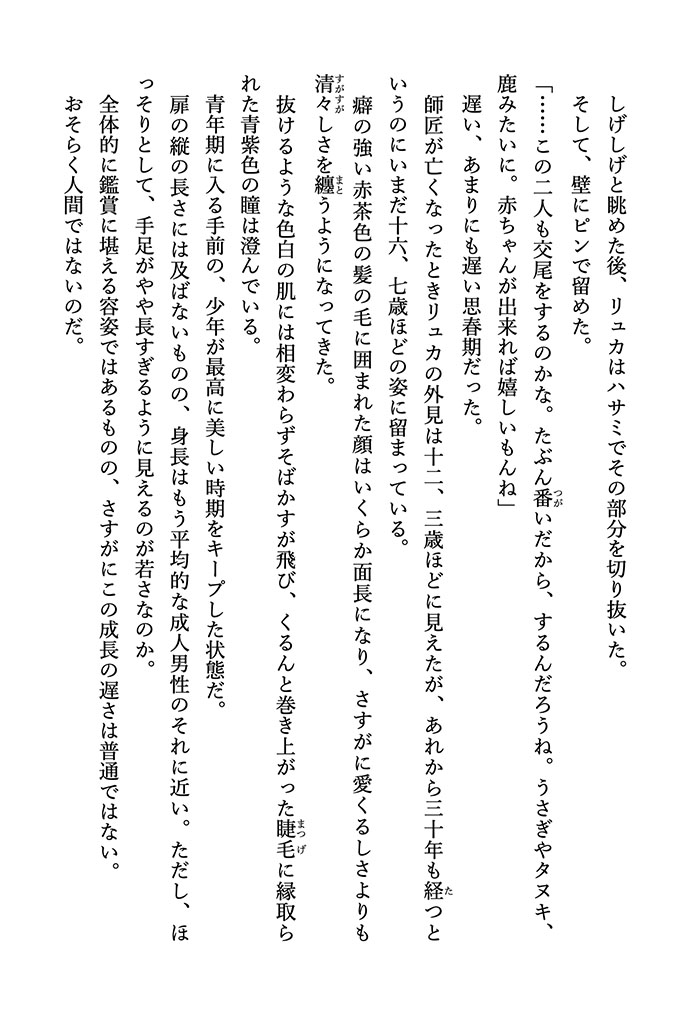 しげしげと眺めた後、リュカはハサミでその部分を切り抜いた。
そして、壁にピンで留めた。
「……この二人も交尾をするのかな。たぶん番いだから、するんだろうね。うさぎやタヌキ、
鹿みたいに。赤ちゃんが出来れば嬉しいもんね」
遅い、あまりにも遅い思春期だった。
師匠が亡くなったときリュカの外見は十二、三歳ほどに見えたが、あれから三十年も経つと
いうのにいまだ十六、七歳ほどの姿に留まっている。
癖の強い赤茶色の髪の毛に囲まれた顔はいくらか面長になり、さすがに愛くるしさよりも
清々しさを纏うようになってきた。
抜けるような色白の肌には相変わらずそばかすが飛び、くるんと巻き上がった睫毛に縁取ら
れた青紫色の瞳は澄んでいる。
青年期に入る手前の、少年が最高に美しい時期をキープした状態だ。
扉の縦の長さには及ばないものの、身長はもう平均的な成人男性のそれに近い。ただし、ほ
っそりとして、手足がやや長すぎるように見えるのが若さなのか。
全体的に鑑賞に堪える容姿ではあるものの、さすがにこの成長の遅さは普通ではない。
おそらく人間ではないのだ。